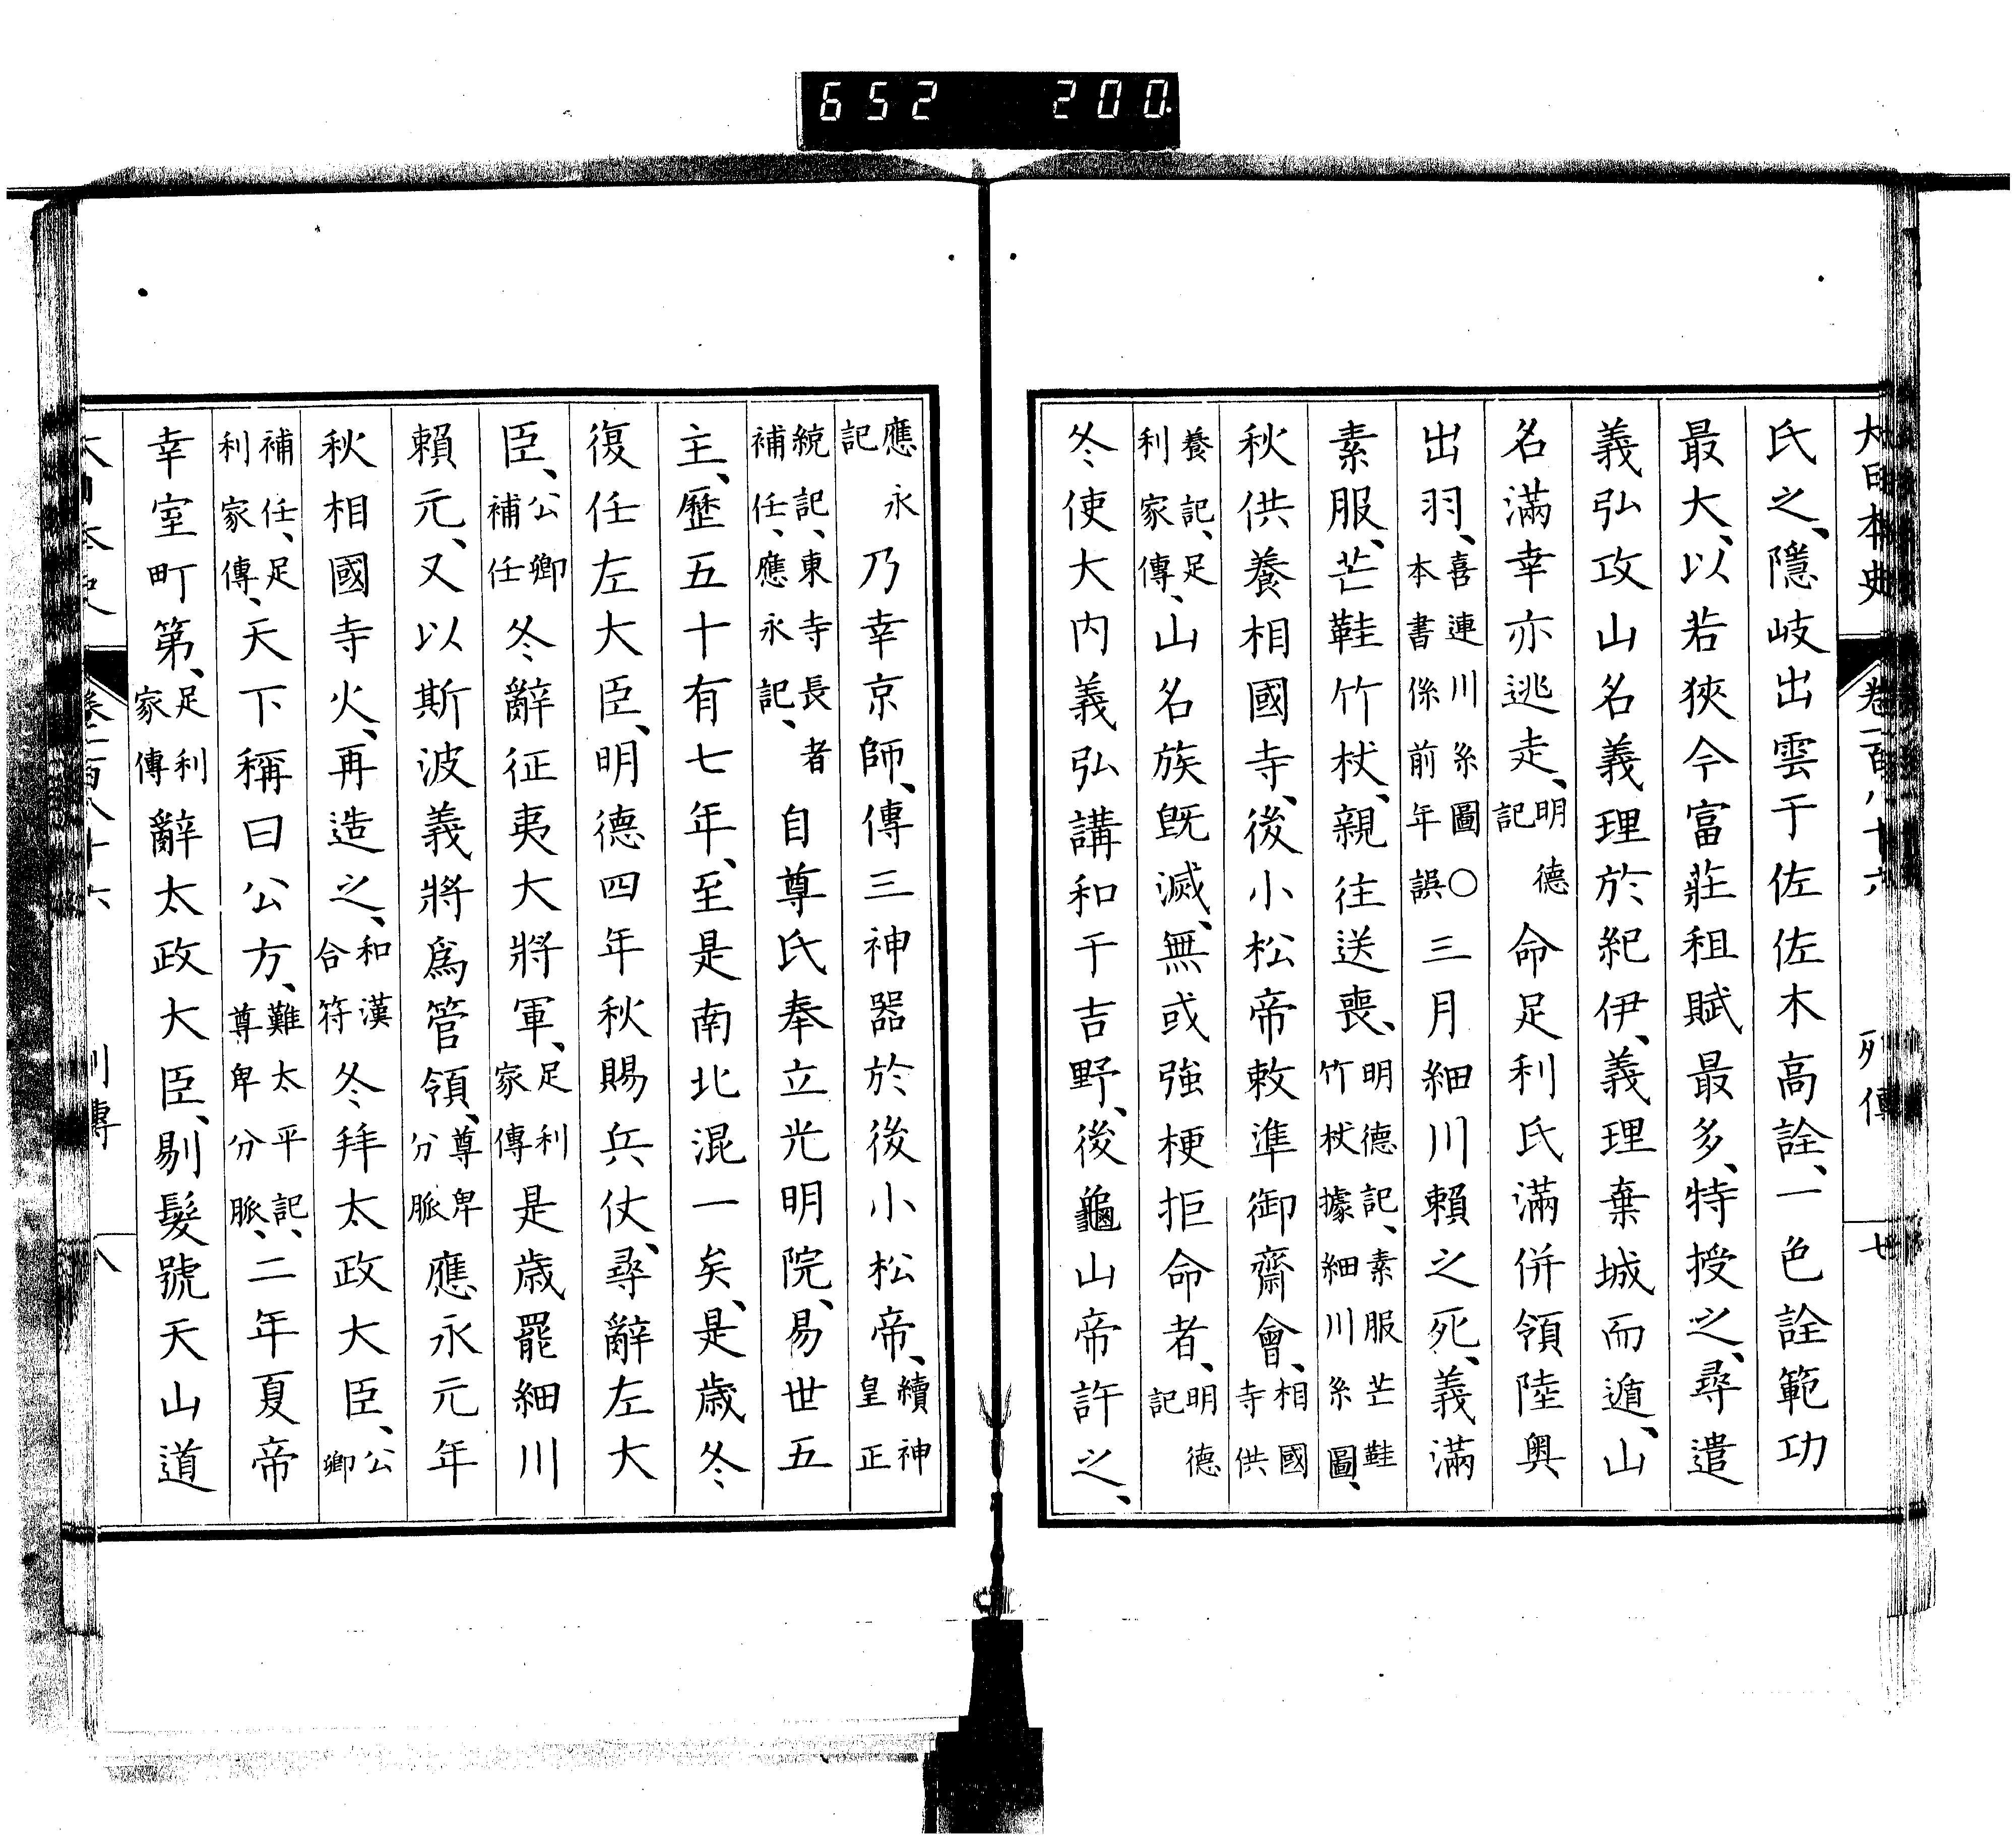 652 200
大日本史 卷一百八十六 列傳 廿
氏之、隱岐出雲于佐佐木高詮、一色詮範功
最大、以若狹今富莊租賦最多、特授之、尋遣
義弘攻山名義理於紀伊、義理棄城而遁、山
名滿幸亦逃走、明德記命足利氏滿併領陸奧
出羽、喜連川系圖○本書係前年誤三月細川賴之死、義滿
素服、芒鞋竹杖、親往送喪、明德記、素服芒鞋竹杖據細川系圖、
秋供養相國寺、後小松帝敕準御齋會、相國寺供
養記、足利家傳、山名族既滅、無或強梗拒命者、明德記
冬使大内義弘講和于吉野、後龜山帝許之、
應永記乃幸京師、傳三神器於後小松帝、續神皇正
統記、東寺長者補任、應永記、自尊氏奉立光明院、易世五
主、歷五十有七年、至是南北混一矣、是歲冬
復任左大臣、明德四年秋賜兵仗、尋辭左大
臣、公卿補任冬辭征夷大將軍、足利家傳是歲罷細川
賴元、又以斯波義將爲管領、尊卑分脈應永元年
秋相國寺火、再造之、和漢合符冬拜太政大臣、公卿
補任、足利家傳、天下稱曰公方、難太平記、尊卑分脈、二年夏帝
幸室町第、足利家傳辭太政大臣、剔髮號天山道
大日本史 卷一百八十六 列傳 八